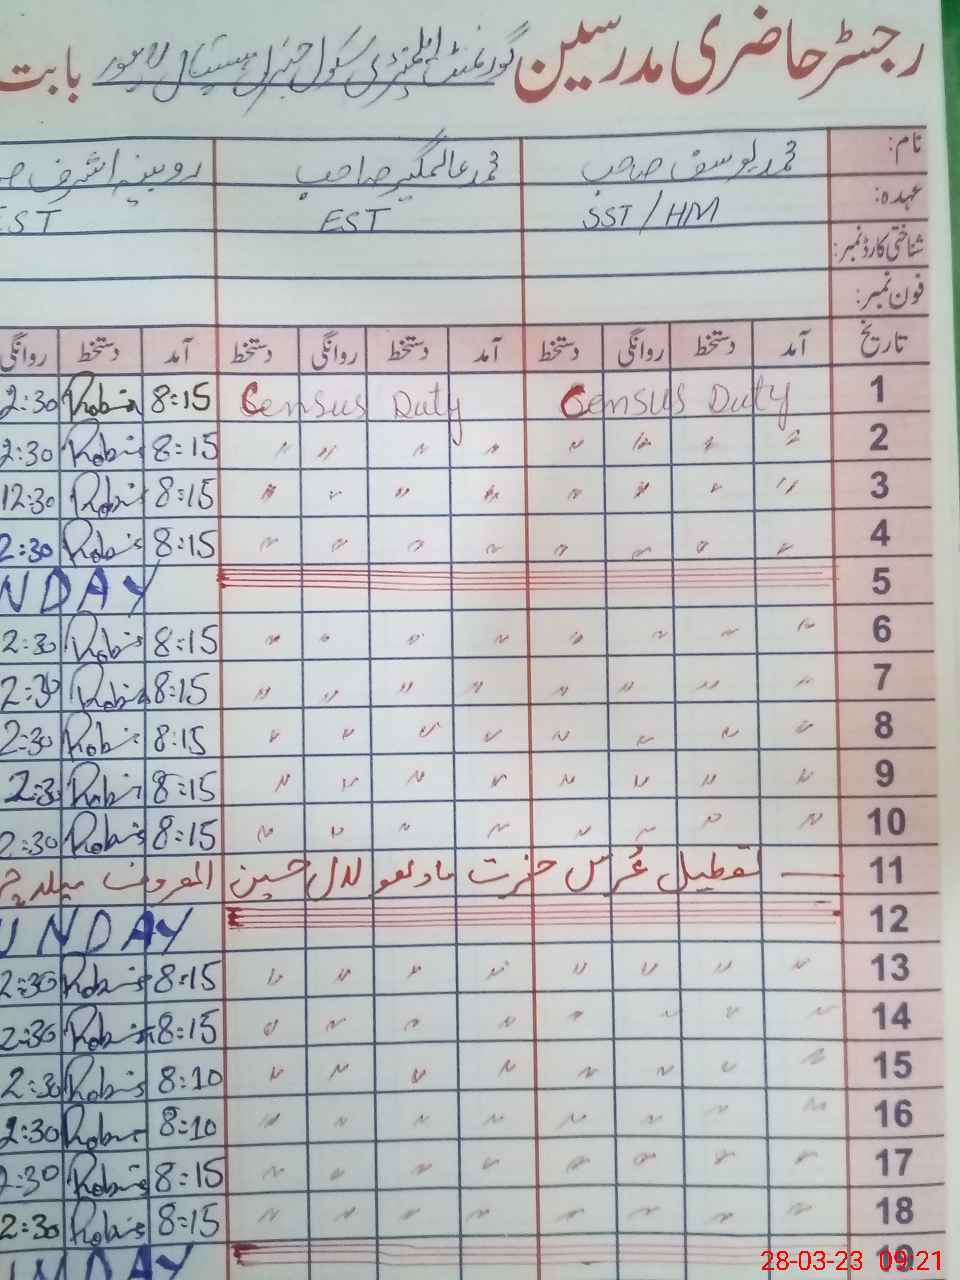 رجسٹر حاضری مدرسین گورنمنٹ ایلیمنٹری سکول جنرل ہسپتال لاہور بابت
نام: محمد یوسف صاحب محمد عالمگیر صاحب روبینہ اشرف
عہدہ: SST/HM EST EST
شناختی کارڈ نمبر:
فون نمبر:
تاریخ آمد دستخط روانگی دستخط آمد دستخط روانگی دستخط آمد دستخط روانگی
1 Census Duty Census Duty 8:15 Robina 2:30
2 " " " " " " " " 8:15 Robina 2:30
3 " " " " " " " " 8:15 Robina 12:30
4 " " " " " " " " 8:15 Robina 2:30
5 NDAY
6 " " " " " " " " 8:15 Robina 2:30
7 " " " " " " " " 8:15 Robina 2:30
8 " " " " " " " " 8:15 Robina 2:30
9 " " " " " " " " 8:15 Robina 2:3
10 " " " " " " " " 8:15 Robina 2:30
11 — تعطیل عُرس حضرت مادھو لال حسین المعروف میلہ
12 UNDAY
13 " " " " " " " " 8:15 Robina 2:30
14 " " " " " " " " 8:15 Robina 2:30
15 " " " " " " " " 8:10 Robina 2:30
16 " " " " " " " " 8:10 Robina 2:30
17 " " " " " " " " 8:15 Robina 2:30
18 " " " " " " " " 8:15 Robina 2:30
19 UNDAY
28-03-23 09:21